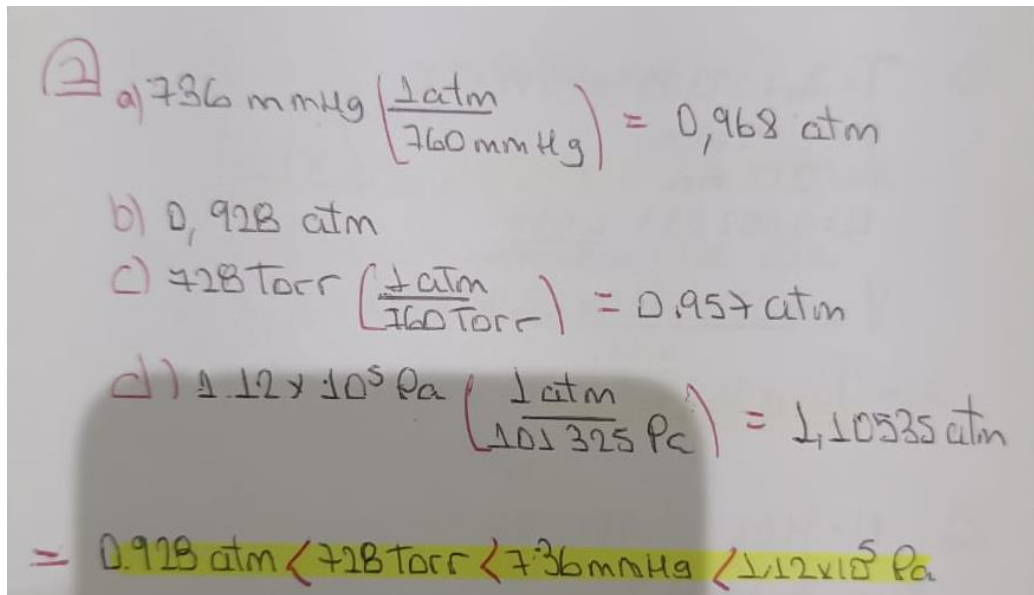 2 a) 736 mmHg (1 atm / 760 mmHg) = 0,968 atm
b) 0,928 atm
c) 728 Torr (1 atm / 760 Torr) = 0.957 atm
d) 1.12 x 10⁵ Pa (1 atm / 101 325 Pa) = 1,10535 atm
= 0.928 atm < 728 Torr < 736 mmHg < 1.12x10⁵ Pa